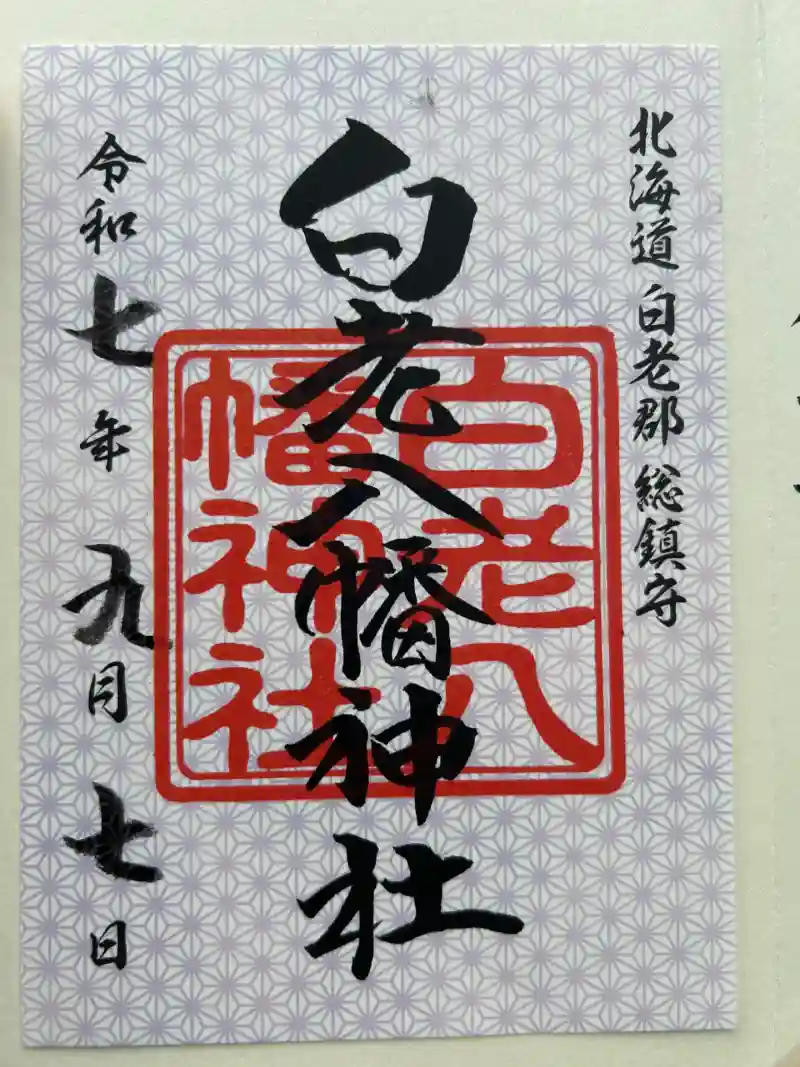 北海道 白老郡 総鎮守
白老八幡神社
白老八
幡神社
令和七年 九月 七日